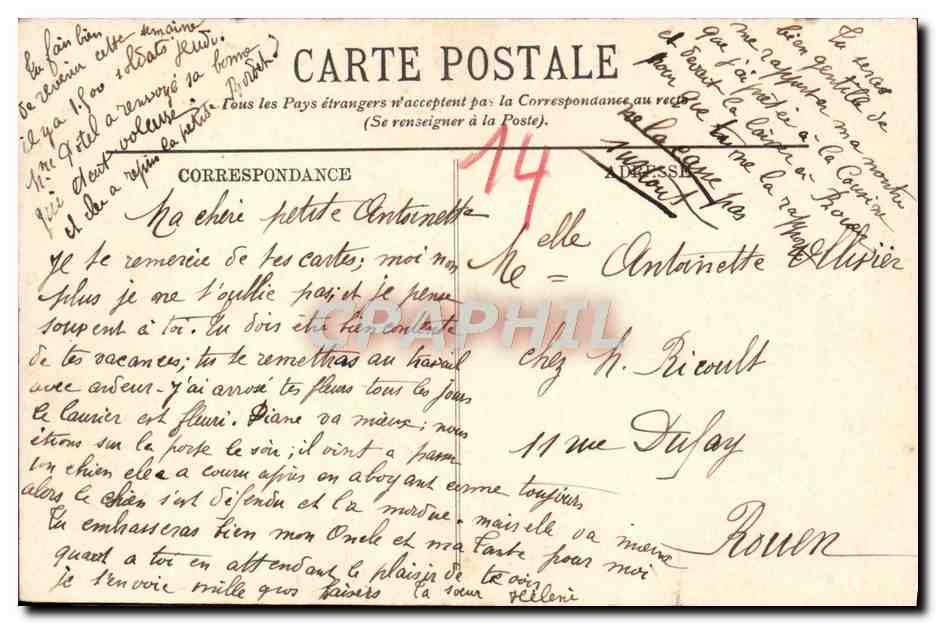 Tu fais bien
de revenir cette semaine
il y a 1.500 soldats jeudi.
Mme Hotel a renvoyé sa bonne
qui était voleuse
et elle a repris la petite
Tu seras
bien gentille de
me rapporter ma montre
que j'ai prêtée à la Cousine
et devait la laisser à Rouen
pour que tu me la rapportes
ne la casse pas
surtout
CARTE POSTALE
Tous les Pays étrangers n'acceptent pas la Correspondance au recto
(Se renseigner à la Poste).
14
CORRESPONDANCE
Ma chère petite Antoinette
Je te remercie de tes cartes; moi non
plus je ne t'oublie pas, et je pense
souvent à toi. Tu dois être bien contente
de tes vacances; tu te remettras au travail
avec ardeur. J'ai arrosé tes fleurs tous les jours
le laurier est fleuri. Diane va mieux; nous
étions sur la porte le soir; il vint a passer
un chien elle a couru après en aboyant comme toujours
alors le chien s'est défendu et l'a mordue. mais elle va mieux
Tu embrasseras bien mon Oncle et ma Tante pour moi
quant a toi en attendant le plaisir de te voir
je t'envoie mille gros baisers ta sœur Hélène
ADRESSE
Melle Antoinette Ollivier
chez M. Ricoult
11 rue Dufay
Rouen
CPAPHIL